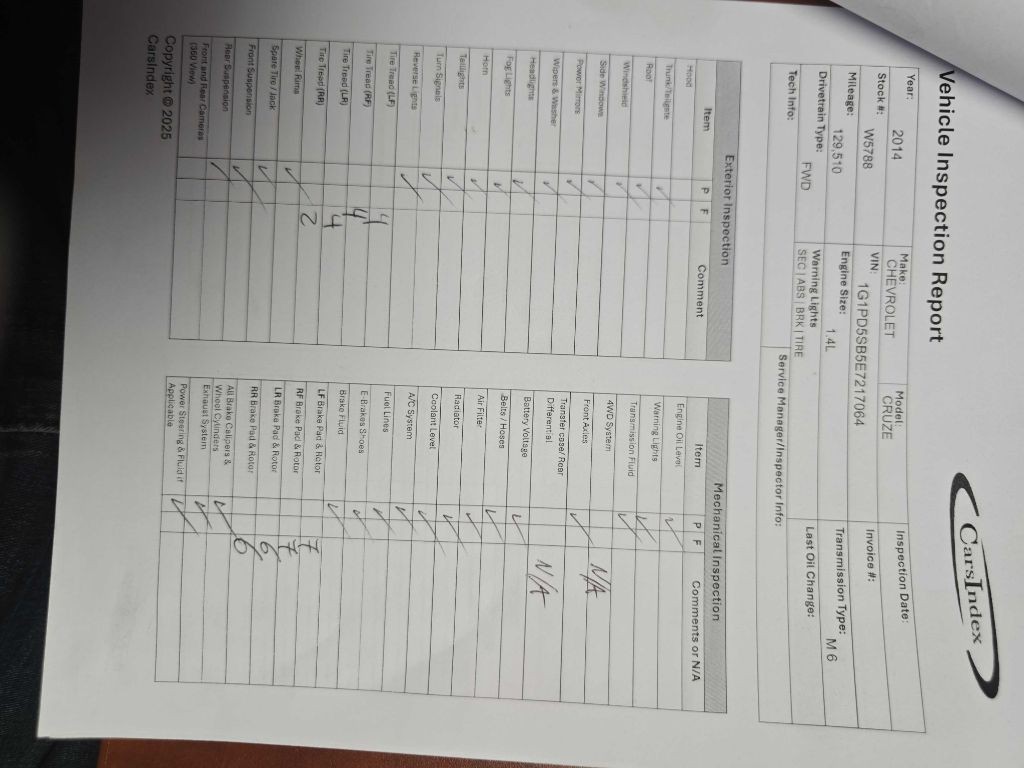 Vehicle Inspection Report
CarsIndex
Year: 2014 Make: CHEVROLET Model: CRUZE Inspection Date:
Stock #: W5788 VIN: 1G1PD5SB5E7217064 Invoice #:
Mileage: 129,510 Engine Size: 1.4L Transmission Type: M6
Drivetrain Type: FWD Warning Lights SEC | ABS | BRK | TIRE Last Oil Change:
Tech Info: Service Manager/Inspector Info:
Exterior Inspection
Item P F Comment
Hood
Trunk/Tailgate ✓
Roof ✓
Windshield ✓
Side Windows ✓
Power Mirrors ✓
Wipers & Washer ✓
Headlights ✓
Fog Lights ✓
Horn ✓
Taillights ✓
Turn Signals ✓
Reverse Lights ✓
Tire Tread (LF) 4
Tire Tread (RF) 4
Tire Tread (LR) 4
Tire Tread (RR) 2
Wheel Rims ✓
Spare Tire / Jack ✓
Front Suspension ✓
Rear Suspension ✓
Front and Rear Cameras
(360 View)
Mechanical Inspection
Item P F Comments or N/A
Engine Oil Level ✓
Warning Lights ✓
Transmission Fluid ✓
4WD System N/A
Front Axles ✓
Transfer case/ Rear
Differential N/A
Battery Voltage ✓
Belts / Hoses ✓
Air Filter ✓
Radiator ✓
Coolant Level ✓
A/C System ✓
Fuel Lines ✓
E-Brakes Shoes ✓
Brake Fluid ✓
LF Brake Pad & Rotor 7
RF Brake Pad & Rotor 7
LR Brake Pad & Rotor 6
RR Brake Pad & Rotor 6
All Brake Calipers &
Wheel Cylinders ✓
Exhaust System ✓
Power Steering & Fluid if
Applicable ✓
Copyright © 2025
CarsIndex